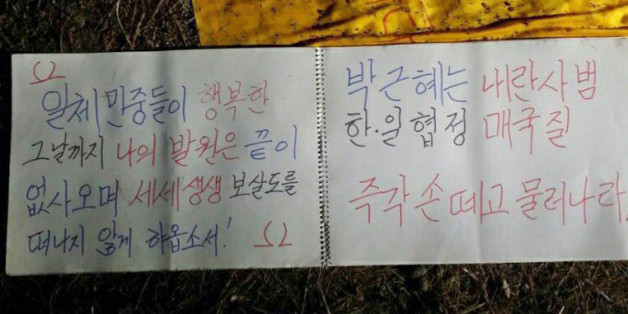 Ω
일체 민중들이 행복한
그날까지 나의 발원은 끝이
없사오며 세세생생 보살도를
떠나지 않게 하옵소서! Ω
박근혜는 내란사범
한·일협정 매국질
즉각 손 떼고 물러나라.